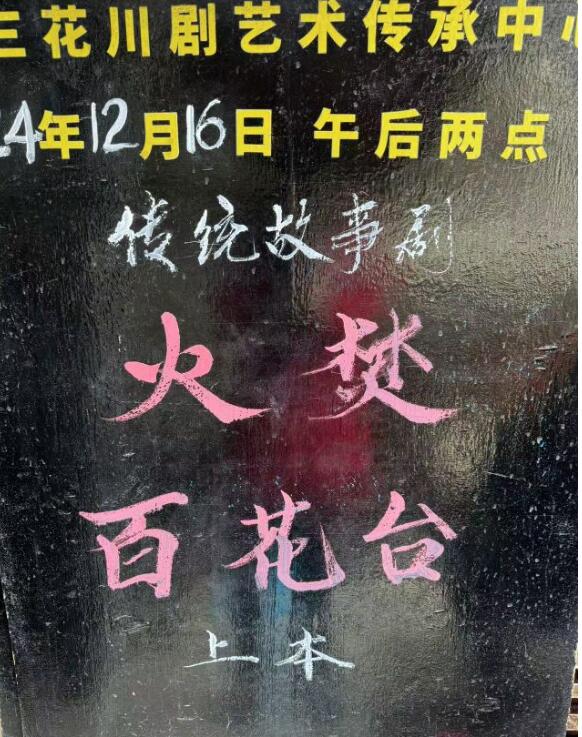 三花川剧艺术传承中心
24年12月16日 午后两点
传统故事剧
火焚
百花台
上本